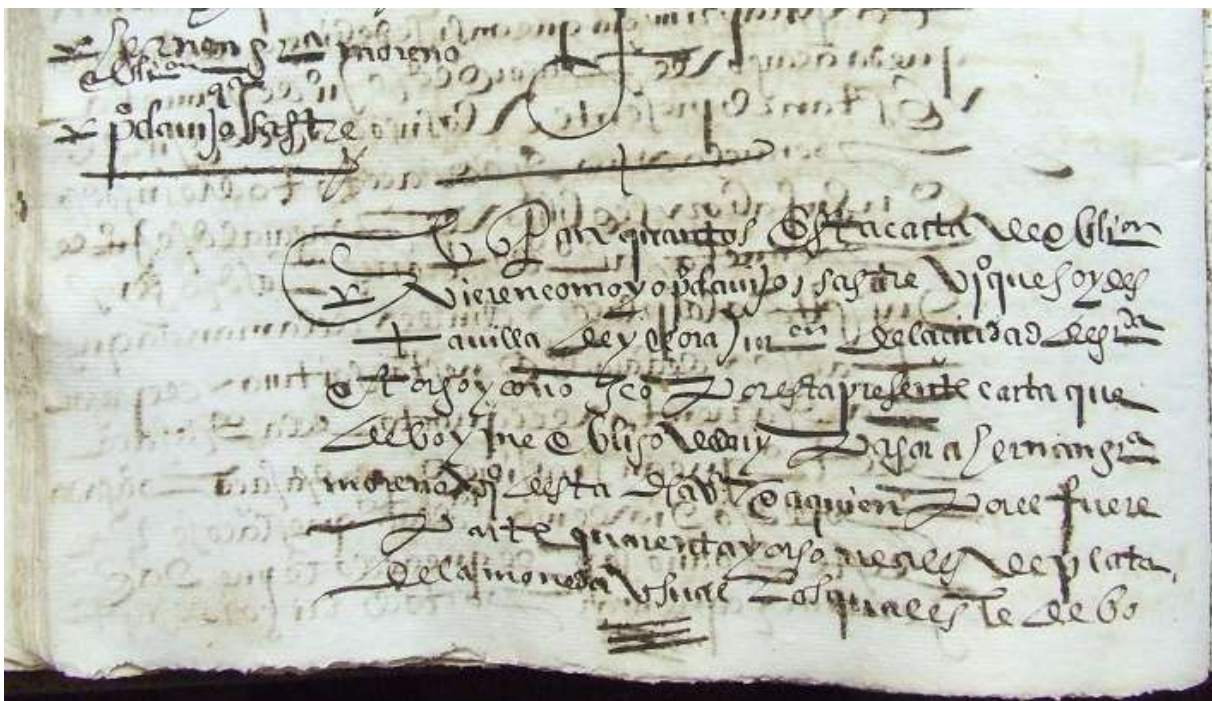 hernan gra moreno
oblion
pº clavijo sastre
Sepan quantos Esta carta de oblion
vieren como yo pº clavijo sastre vº que soy des
ta villa de yllora jurn de la ciudad de grda
otorgo y conozco por esta presente carta que
debo y me obligo de dar y pagar a hernan gra
moreno vº desta dha vª E a quien por el fuere
parte quarenta y ocho rreales de plata
de la moneda usual los quales le debo